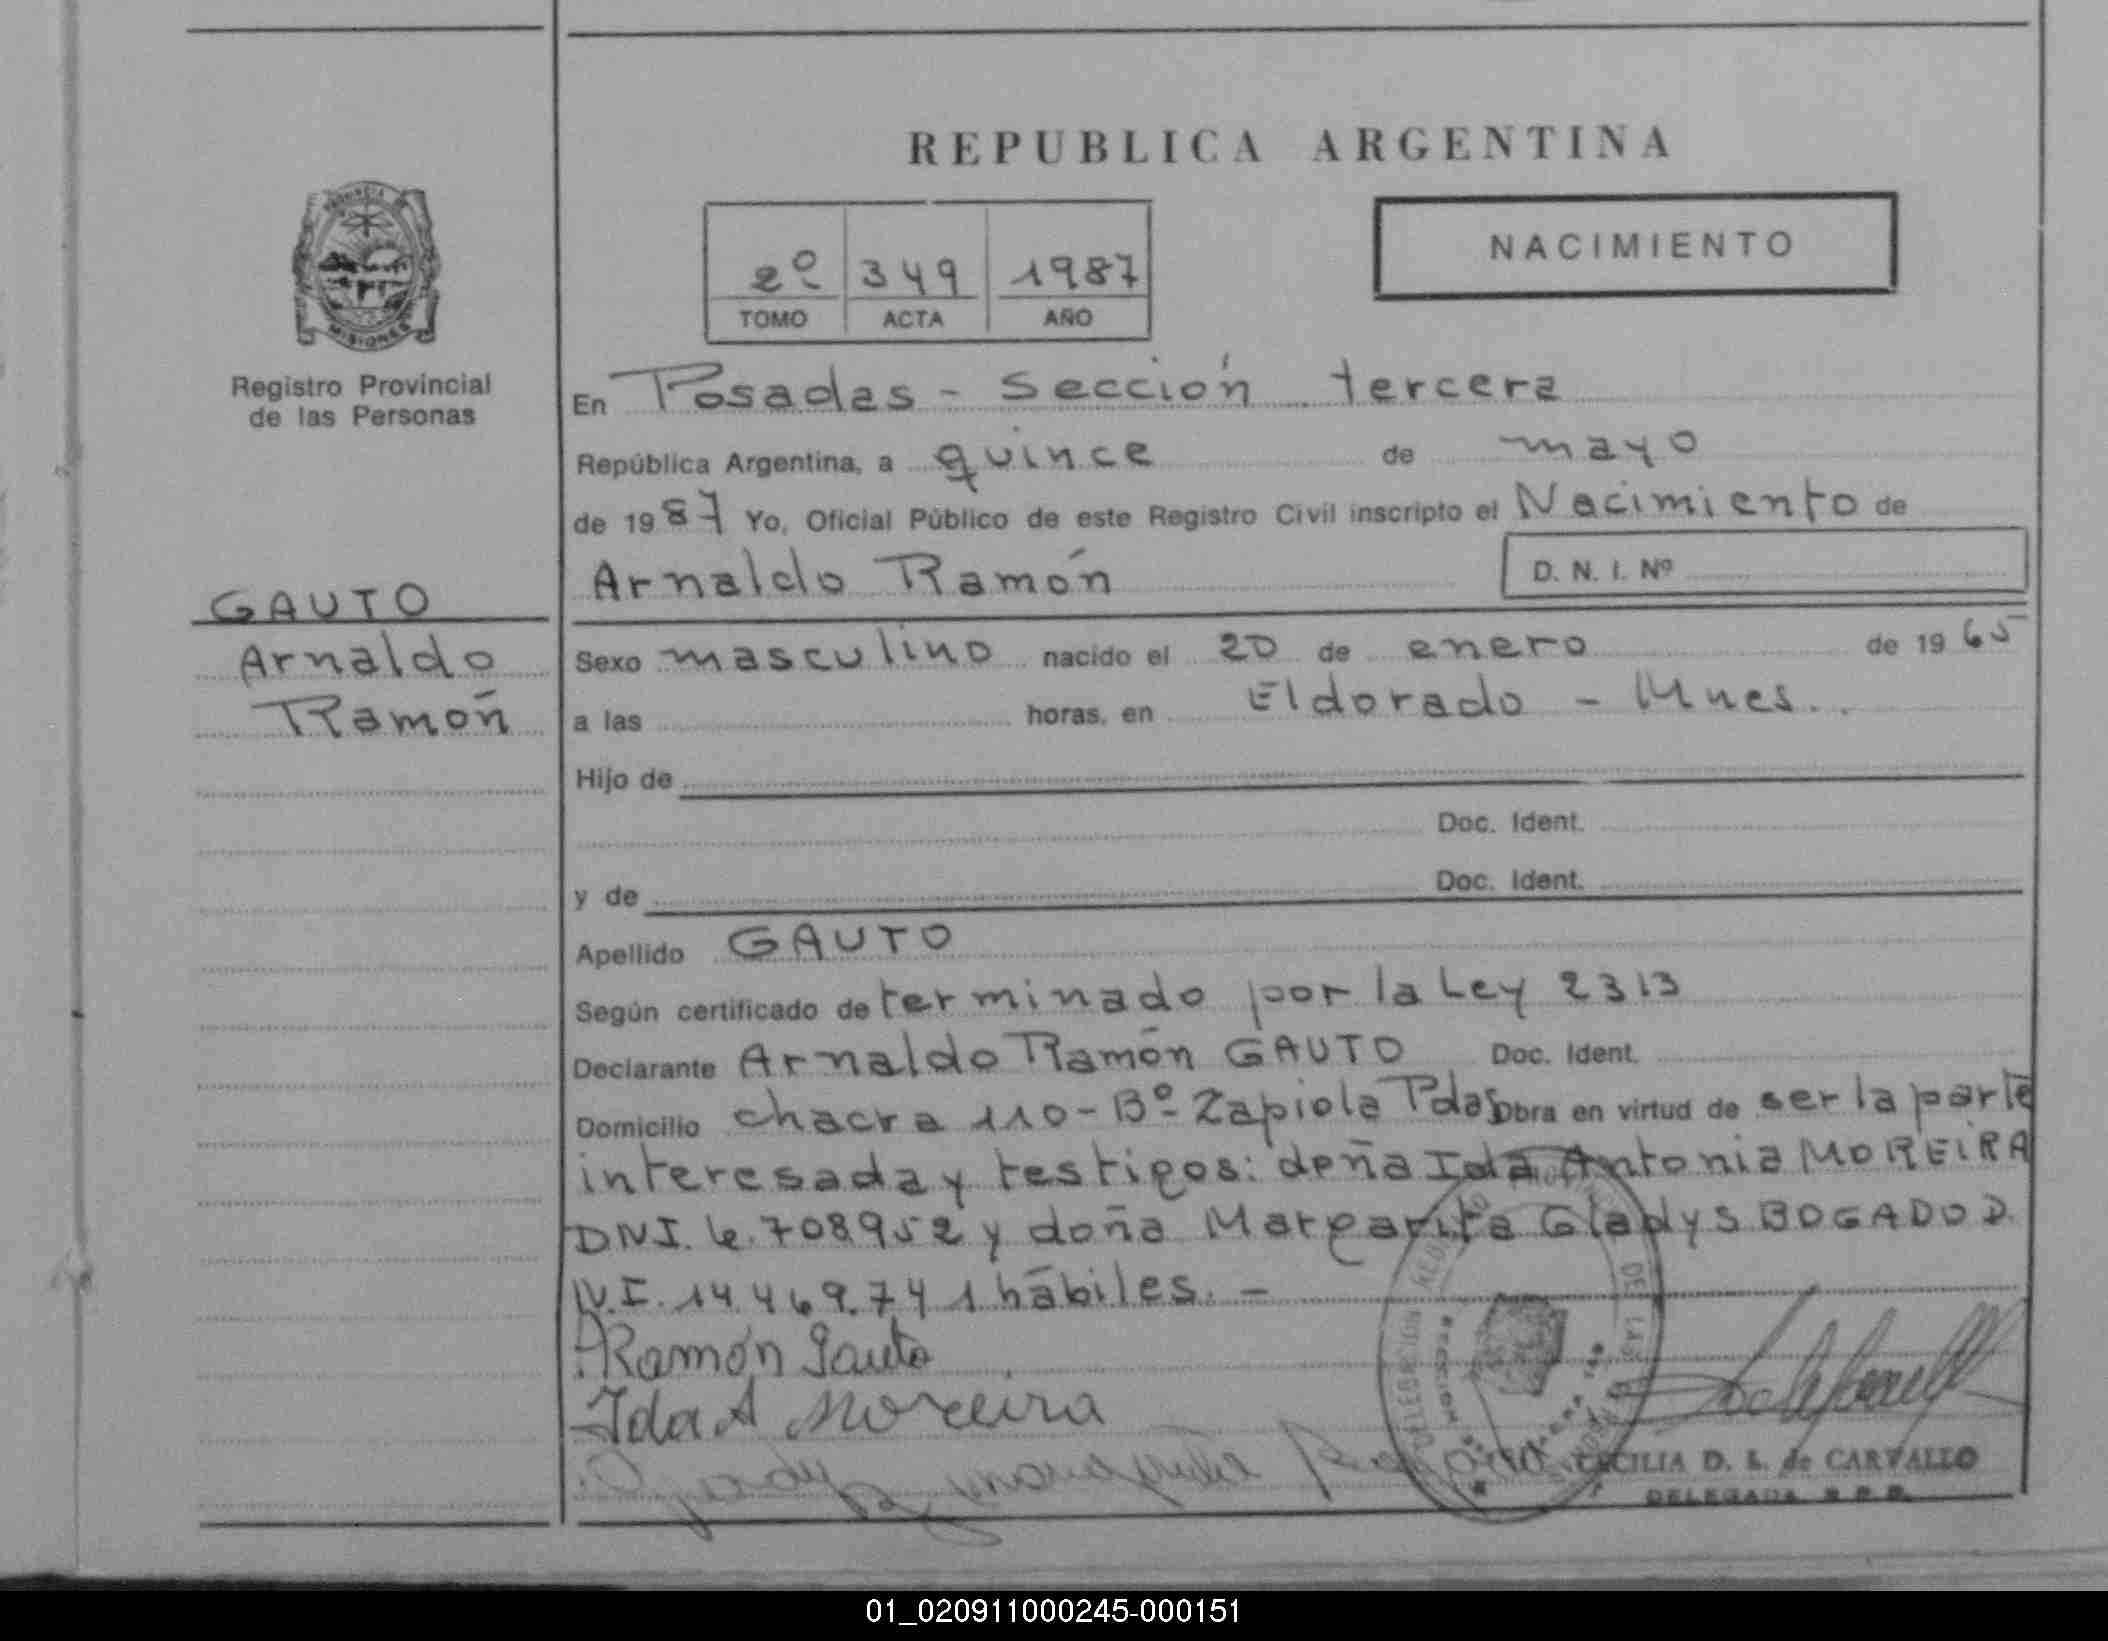 REPUBLICA ARGENTINA
NACIMIENTO
2º 349 1987
TOMO ACTA AÑO
PROVINCIA DE
MISIONES
Registro Provincial
de las Personas
GAUTO
Arnaldo
Ramón
En Posadas - Sección tercera
República Argentina, a quince de mayo
de 1987 Yo, Oficial Público de este Registro Civil inscripto el Nacimiento de
Arnaldo Ramón D. N. I. Nº
Sexo masculino nacido el 20 de enero de 1965
a las horas, en Eldorado - Mnes.
Hijo de
Doc. Ident.
y de Doc. Ident.
Apellido GAUTO
Según certificado determinado por la Ley 2313
Declarante Arnaldo Ramón GAUTO Doc. Ident.
Domicilio chacra 110 - Bº Zapiola Pdas Obra en virtud de ser la parte
interesada y testigos: doña Ida Antonia MOREIRA
DNI. 6.708952 y doña Margarita Gladys BOGADO D.
N.I. 14.469.741 hábiles. -
Ramón Gauto
Ida A Moreira
CECILIA D. L. de CARVALLO
DELEGADA R. P. P.
01_020911000245-000151